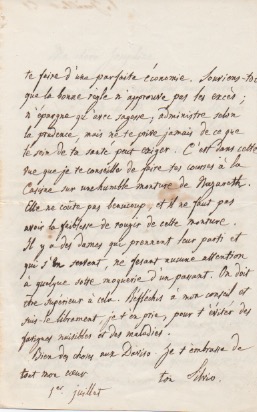 te faire d'une parfaite économie. Souviens-toi
que la bonne règle n'approuve pas les excès ;
n'épargne qu'avec sagesse, administre selon
la prudence, mais ne te prive jamais de ce que
le soin de ta santé peut exiger. C'est dans cette
vue que je te conseille de faire tes courses à la
sur une humble monture de Nazareth.
Elle ne coûte pas beaucoup, et il ne faut pas
avoir la faiblesse de rougir de cette monture.
Il y a des dames qui prennent leur parti et
qui s'en servent, ne fesant aucune attention
à quelque sotte moquerie d'un passant. On doit
être supérieur à cela. Réfléchis à mon conseil et
suis-le librement, je t'en prie, pour t'éviter des
fatigues nuisibles et des maladies.
Bien des choses aux Je t'embrasse de
tout mon cœur
ton Silvio.
1er juillet